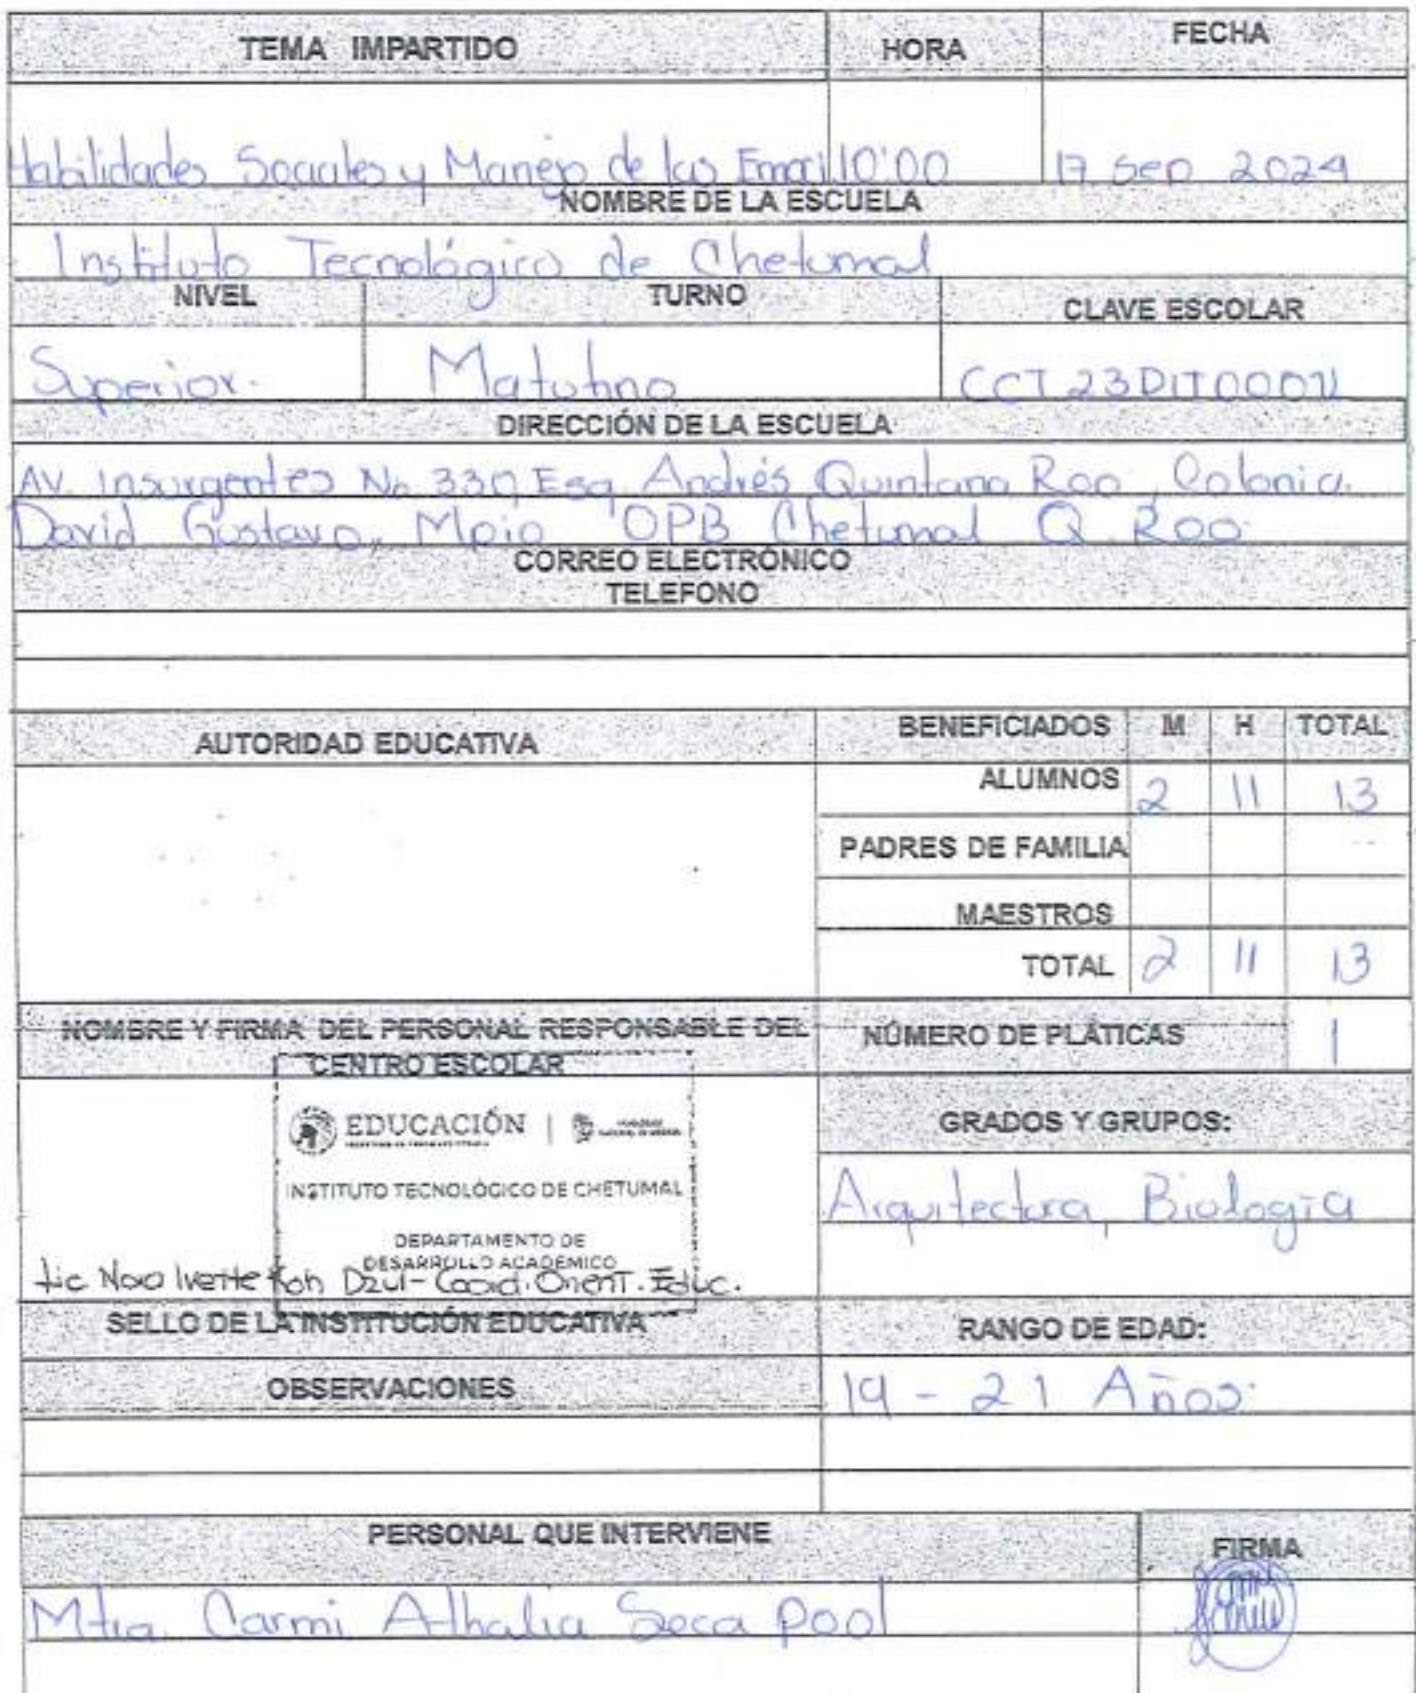 TEMA IMPARTIDO HORA FECHA
Habilidades Sociales y Manejo de las Emoci 10:00 17 Sep 2024
NOMBRE DE LA ESCUELA
Instituto Tecnológico de Chetumal
NIVEL TURNO CLAVE ESCOLAR
Superior. Matutino CCT 23DIT0001
DIRECCIÓN DE LA ESCUELA
AV. Insurgentes No 330 Esq. Andrés Quintana Roo, Colonia.
David Gustavo, Mpio OPB Chetumal Q. Roo.
CORREO ELECTRÓNICO
TELEFONO
AUTORIDAD EDUCATIVA BENEFICIADOS M H TOTAL
ALUMNOS 2 11 13
PADRES DE FAMILIA
MAESTROS
TOTAL 2 11 13
NOMBRE Y FIRMA DEL PERSONAL RESPONSABLE DEL
CENTRO ESCOLAR
NÚMERO DE PLÁTICAS 1
EDUCACIÓN
INSTITUTO TECNOLÓGICO DE CHETUMAL
DEPARTAMENTO DE
DESARROLLO ACADÉMICO
Lic Nora Ivette Koh Dzul - Coord. Orient. Educ.
GRADOS Y GRUPOS:
Arquitectura, Biología
SELLO DE LA INSTITUCIÓN EDUCATIVA RANGO DE EDAD:
OBSERVACIONES 19 - 21 Años.
PERSONAL QUE INTERVIENE FIRMA
Mtra. Carmi Athalia Seca Pool